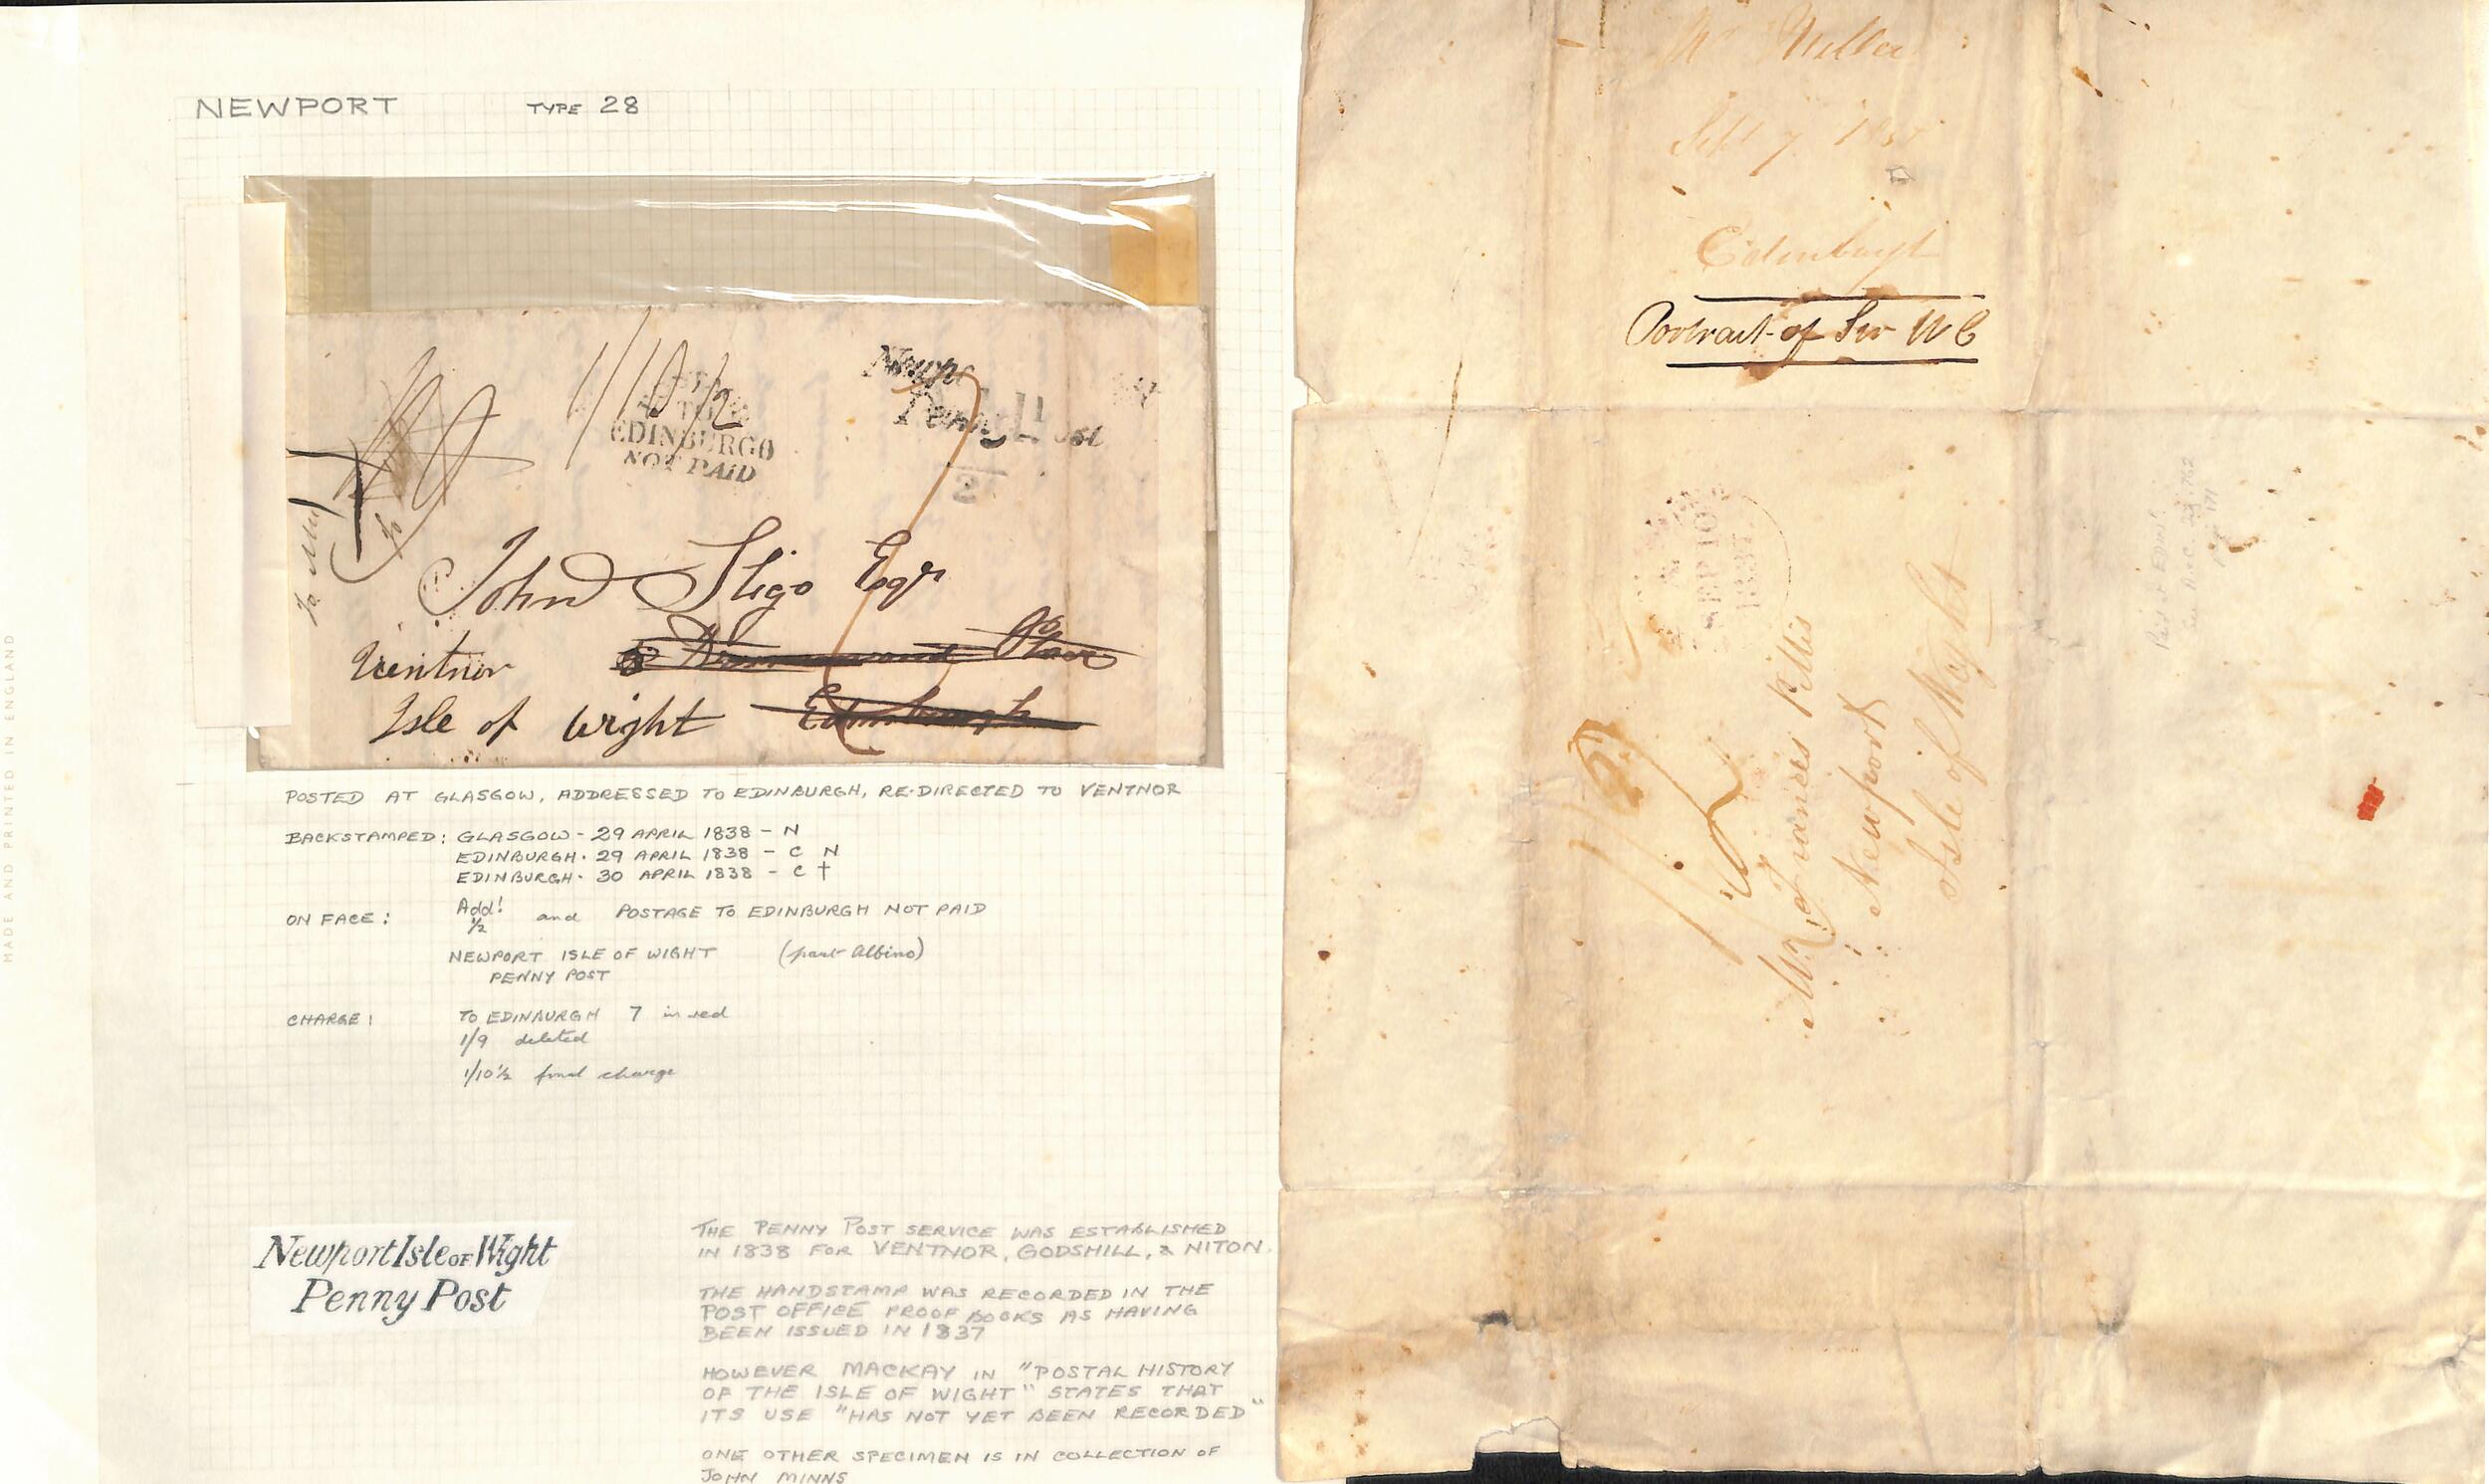 NEWPORT TYPE 28
1/10 1/2
EDINBURGH
NOT PAID
Newp
Penny
1/2
John Sligo Esqr
Place
Ventnor
Isle of Wight Edinburgh
POSTED AT GLASGOW, ADDRESSED TO EDINBURGH, RE-DIRECTED TO VENTNOR
BACKSTAMPED: GLASGOW - 29 APRIL 1838 - N
EDINBURGH - 29 APRIL 1838 - C N
EDINBURGH - 30 APRIL 1838 - C †
ON FACE: Add! 1/2 and POSTAGE TO EDINBURGH NOT PAID
NEWPORT ISLE OF WIGHT (part Albino)
PENNY POST
CHARGE: TO EDINBURGH 7 in red
1/9 deleted
1/10½ final charge
Newport Isle OF Wight
Penny Post
THE PENNY POST SERVICE WAS ESTABLISHED
IN 1838 FOR VENTNOR, GODSHILL, & NITON.
THE HANDSTAMP WAS RECORDED IN THE
POST OFFICE PROOF BOOKS AS HAVING
BEEN ISSUED IN 1837
HOWEVER MACKAY IN "POSTAL HISTORY
OF THE ISLE OF WIGHT" STATES THAT
ITS USE "HAS NOT YET BEEN RECORDED"
ONE OTHER SPECIMEN IS IN COLLECTION OF
JOHN MINNS
MADE AND PRINTED IN ENGLAND
Mr Miller
Sept 7 1837
Edinburgh
Portrait of Sir W C
SEP 10
1837
Newport
Isle of Wight